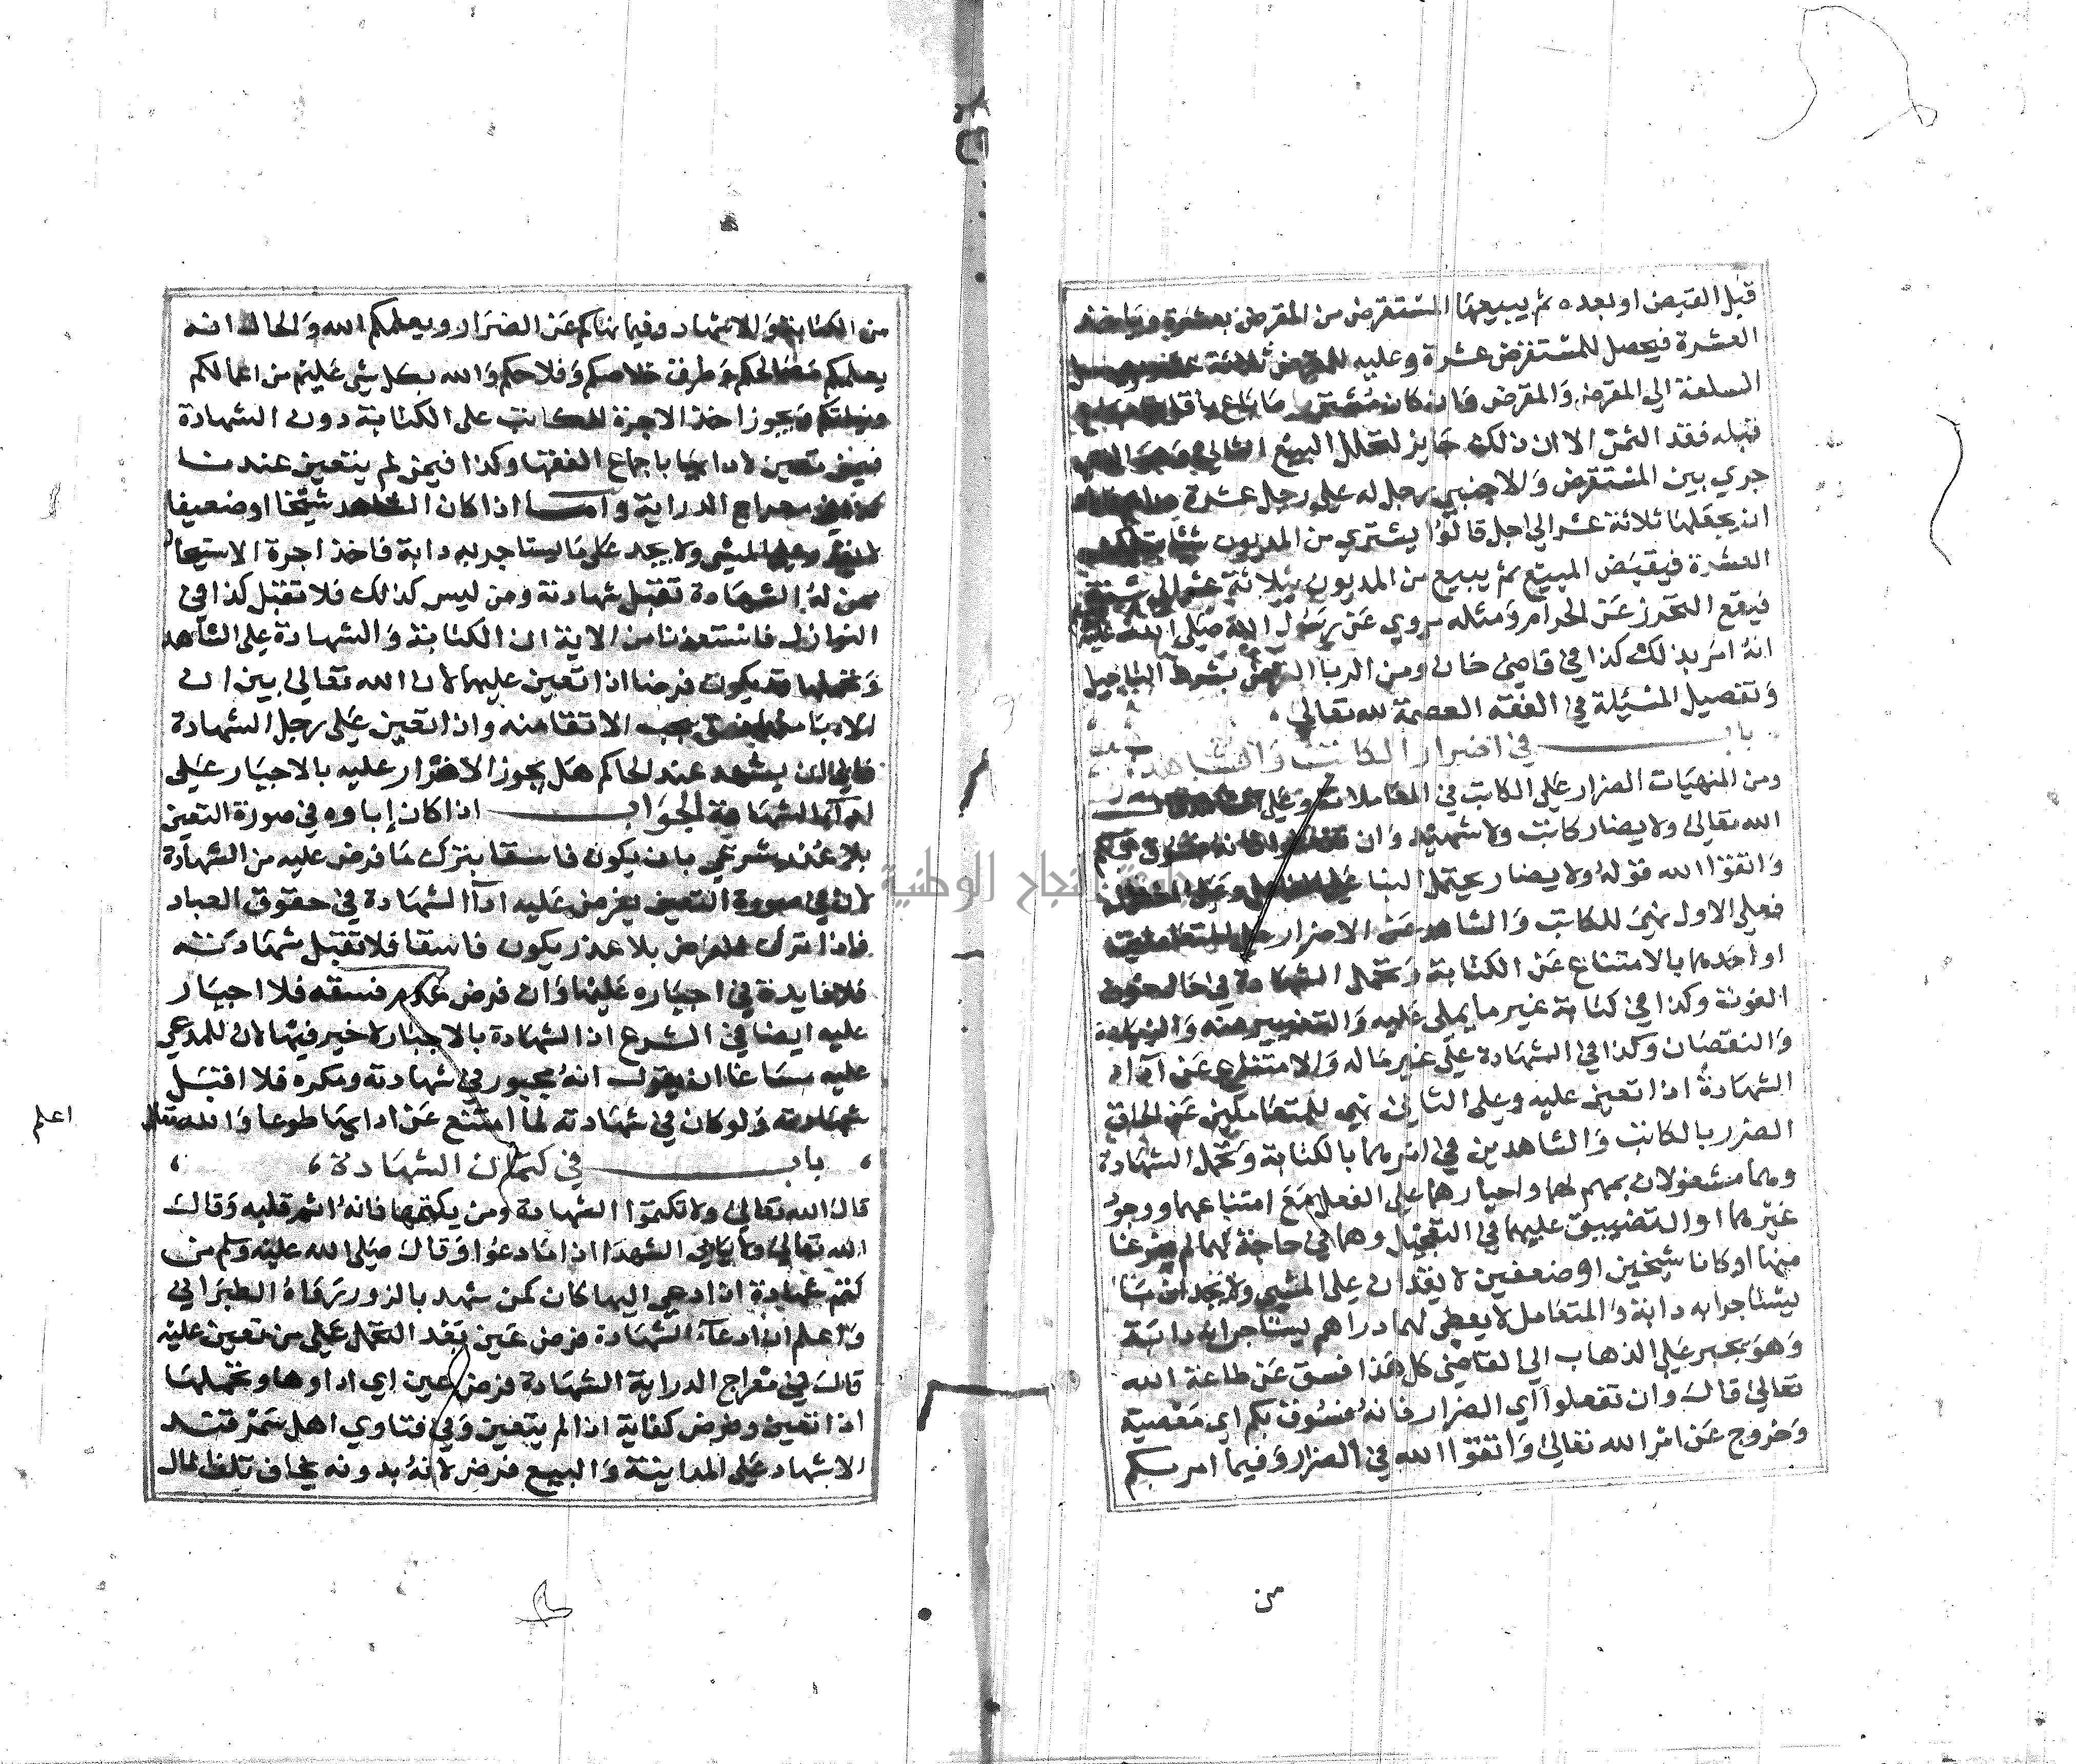 قبل القبض او بعده ثم يبيعها المستقرض من المقرض بعشرة وياخذ
العشرة فيحصل للمستقرض عشرة وعليه للمقرض ثلاثة عشر
السلعة الي المقرض والمقرض وان كان مشتريا ما باع باقل مما باع
قبله فقد الثمن الا ان ذلك جايز لتخلل البيع الثاني
جري بين المستقرض والاجنبي رجل له علي رجل عشرة
ان يجعلها ثلاثة عشر الي اجل قالوا يشتري من المديون شيئا بتلك
العشرة فيقبض المبيع ثم يبيع من المديون بثلاثة عشر الي سنة
فيقع التحرز عن الحرام ومثله مروي عن رسول الله صلي الله عليه
انه امر بذلك كذا في قاضي خان ومن الربا القرض بشرط التاجيل
وتفصيل المسئلة في الفقه العصمة لله تعالي
باب في اضرار الكاتب والشاهد
ومن المنهيات الضرار علي الكاتب في المعاملات وعلي
الله تعالي ولا يضار كاتب ولا شهيد وان تفعلوا فانه فسوق بكم
واتقوا الله قوله ولا يضار يحتمل البنا علي الفاعل وعلي المفعول
فعلي الاول نهي للكاتب والشاهد عن الاضرار
او احدهما بالامتناع عن الكتابة وتحمل الشهادة في حال خوف
الفوتة وكذا في كتابة غير ما يملي عليه والتغيير منه والزيادة
والنقصان وكذا في الشهادة علي غير ماله والامتناع عن آداء
الشهادة اذا تعين عليه وعلي الثاني نهي للمتعاملين عن الحاق
الضرر بالكاتب والشاهدين في امرهما بالكتابة وتحمل الشهادة
وهما مشغولان بمهم لهما واجبارهما علي الفعل مع امتناعهما ووجود
غيرهما او التضييق عليهما في التعجيل وهما في حاجة لهما لم يفرغا
منها او كانا شيخين او ضعيفين لا يقدران علي المشي ولا يجدان ما
يستاجرا به دابة والمتعامل لا يعطي لهما دراهم ليستاجرا به دابة
وهو يجبر علي الذهاب الي القاضي كل هذا فسق عن طاعة الله
تعالي قال وان تفعلوا اي الضرار فانه فسوق بكم اي معصية
وخروج عن امر الله تعالي واتقوا الله في الضرار وفيما امر بكم
من
من الكتابة والاشهاد وفيما نهاكم عن الضرار ويعلمكم الله والحال انه
يعلمكم مصالحكم وطرق خلاصكم وفلاحكم والله بكل شي عليم من اعمالكم
ويجوز اخذ الاجرة للكاتب علي الكتابة دون الشهادة
فيمن تعين لادايها باجماع الفقها وكذا فيمن لم يتعين عندنا
كذا في معراج الدراية واما اذا كان الشاهد شيخا او ضعيفا
لا يقدر علي المشي ولا يجد علي ما يستاجر به دابة فاخذ اجرة الاستيجار
ممن له الشهادة تقبل شهادته ومن ليس كذلك فلا تقبل كذا في
النوازل فاستعدنا من الاية ان الكتابة والشهادة علي الشاهد
وتحملها قد يكون فرضا اذا تعين عليهما لان الله تعالي بين ان
الاتقا منه واذا تعين علي رجل الشهادة
فابي ان يشهد عند الحاكم هل يجوز الاضرار عليه بالاجبار علي
ادآء الشهادة الجواب اذا كان إباوه في صورة التعين
بلا عذر شرعي بان يكون فاسقا بترك ما فرض عليه من الشهادة
لان في صورة التعين يفرض عليه ادآ الشهادة في حقوق العباد
فاذا ترك الفرض بلا عذر يكون فاسقا فلا تقبل شهادته
فلا فايدة في اجباره عليها وان فرض عدم فسقه فلا اجبار
عليه ايضا في الشرع اذ الشهادة بالاجبار لا خير فيها لان للمدعي
عليه مساغا ان يقول انه مجبور في شهادته ومكره فلا اقبل
شهادته ولو كان في شهادته لما امتنع عن ادايها طوعا والله تعالي
اعلم
باب في كتمان الشهادة
قال الله تعالي ولا تكتموا الشهادة ومن يكتمها فانه اثم قلبه وقال
الله تعالي ولا ياب الشهدا اذا ما دعوا وقال صلي الله عليه وسلم من
كتم شهادة اذا دعي اليها كان كمن شهد بالزور رواه الطبراني
واعلم ان ادآء الشهادة فرض عين بعد التحمل علي من تعين عليه
قال في معراج الدراية الشهادة فرض عين اي اداوها وتحملها
اذا تعين وفرض كفاية اذا لم يتعين وفي فتاوي اهل سمرقند
الاشهاد علي المداينة والبيع فرض لانه بدونه يخاف تلف المال
جامعة النجاح الوطنية